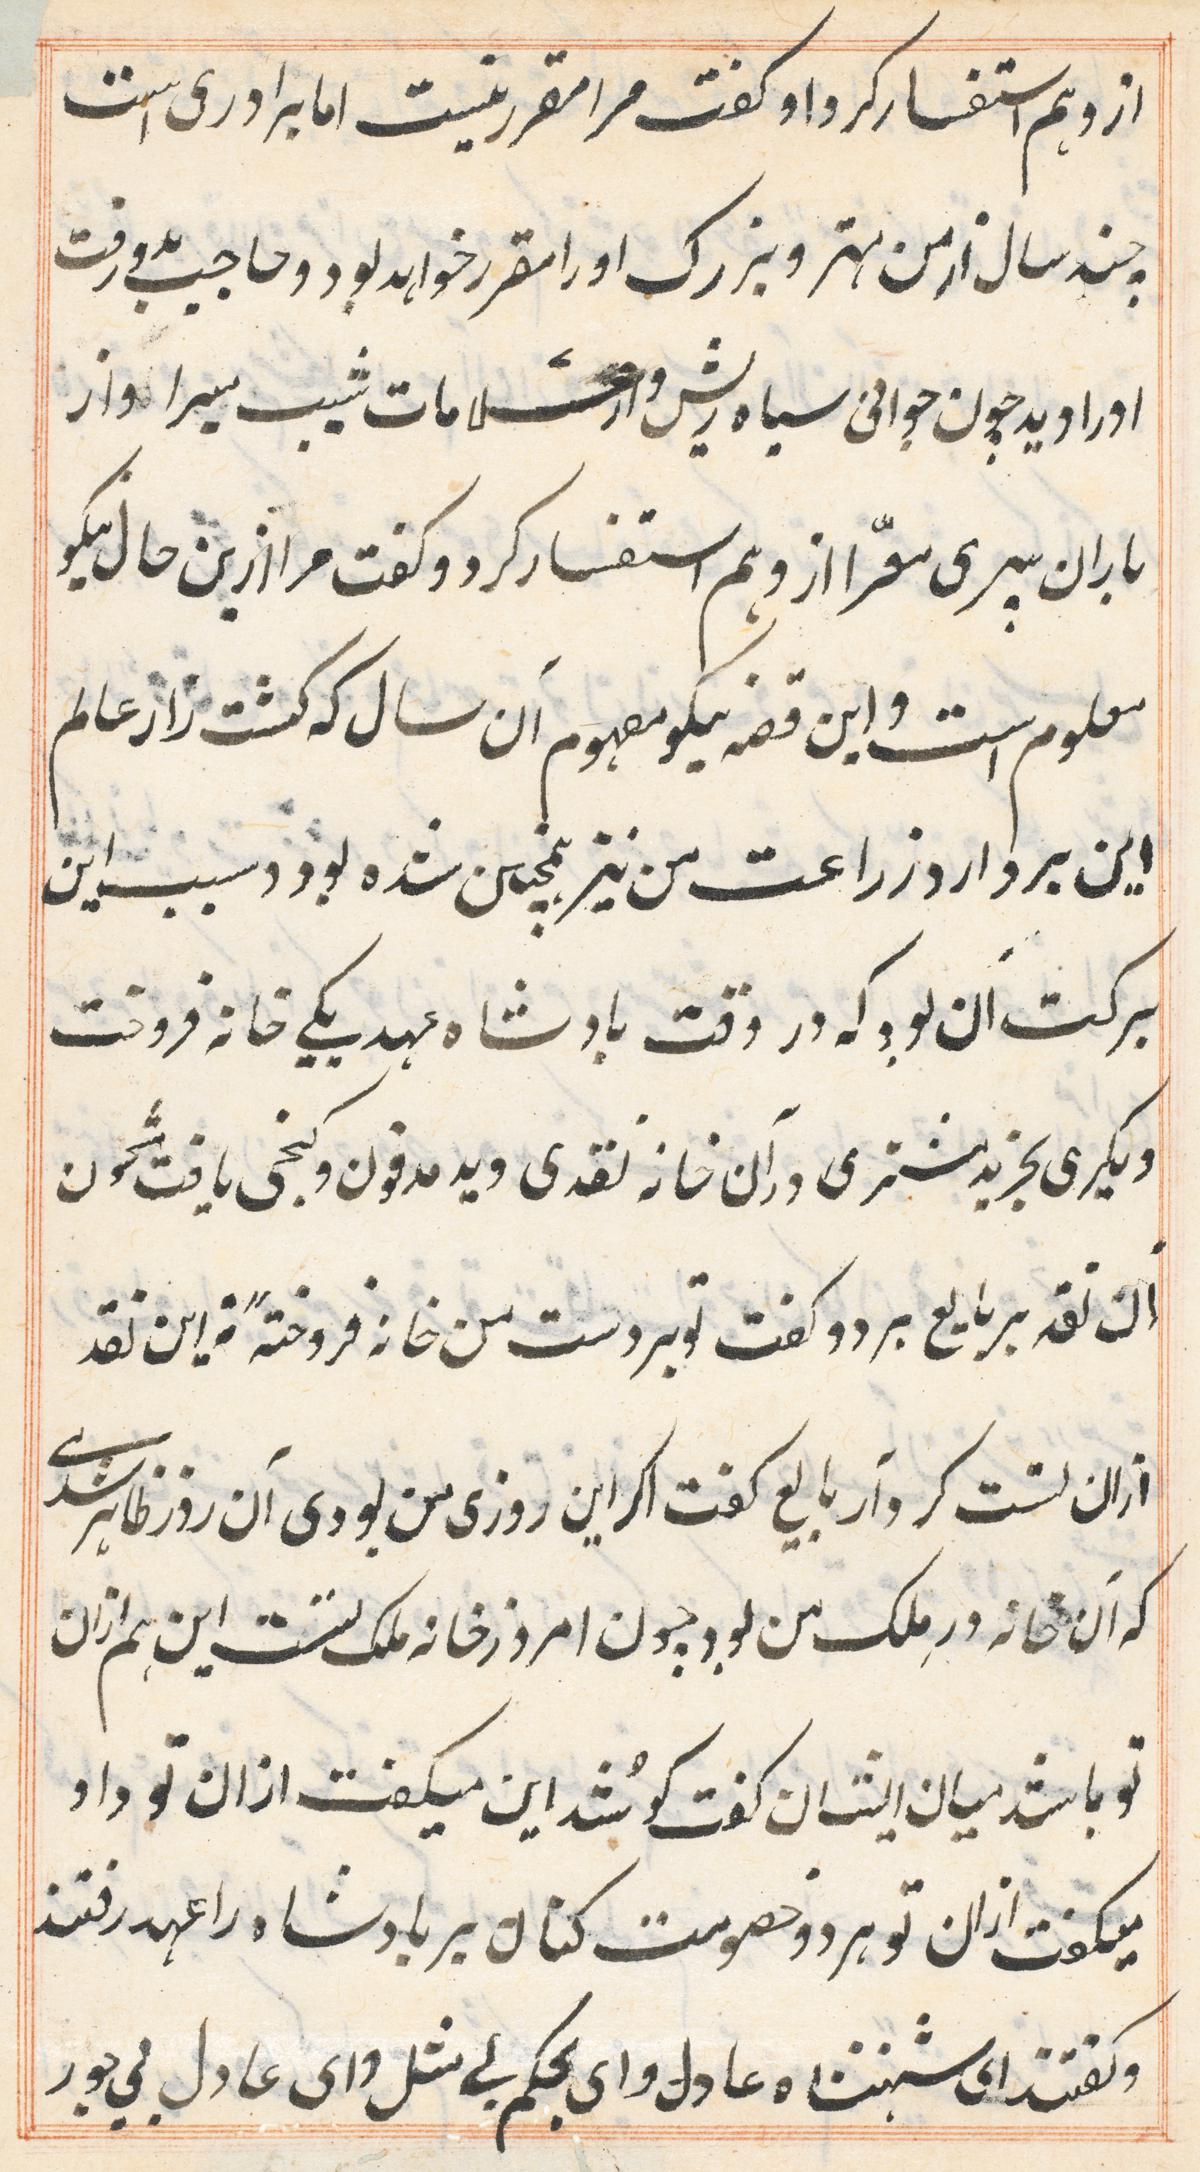 ازو هم استفسار کرد او کفت مرا مقرر نیست اما برادری است
چند سال از من مهتر و بزرک او را مقرر خواهد بود و حاجب برو رفت
او را دید چون جوانی سیاه ریش و از علامات شیب مبرا و از
باران پیری معرّا ازو هم استفسار کرد و کفت مرا ازین حال نیکو
معلوم است و این قصه نیکو مفهوم آن سال که کشت زار عالم
این بر دارد زراعت من نیز همچنین شده بود و سبب این
برکت آن بود که در وقت بادشاه عهد یکی خانه فروخت
و یکری بخرید مشتری در آن خانه نقدی دید مدفون و کنجی یافت مشحون
آن نقد بر بایع برد و کفت تو بر دست من خانه فروختهٔ نه این نقد
ازان تست کرد آر بایع کفت اکر این روزی من بودی آن روز ظاهر شدی
که آن خانه در مِلک من بود چون امروز خانه ملک تست این هم ازان
تو باشد میان ایشان کفت کو شد این میکفت ازان تو و او
میکفت ازان تو هر دو خصومت کنان بر بادشاه را عهد رفتند
و کفتند ای شهنشاه عادل و ای حکم بی مثل و ای عادل بی جور